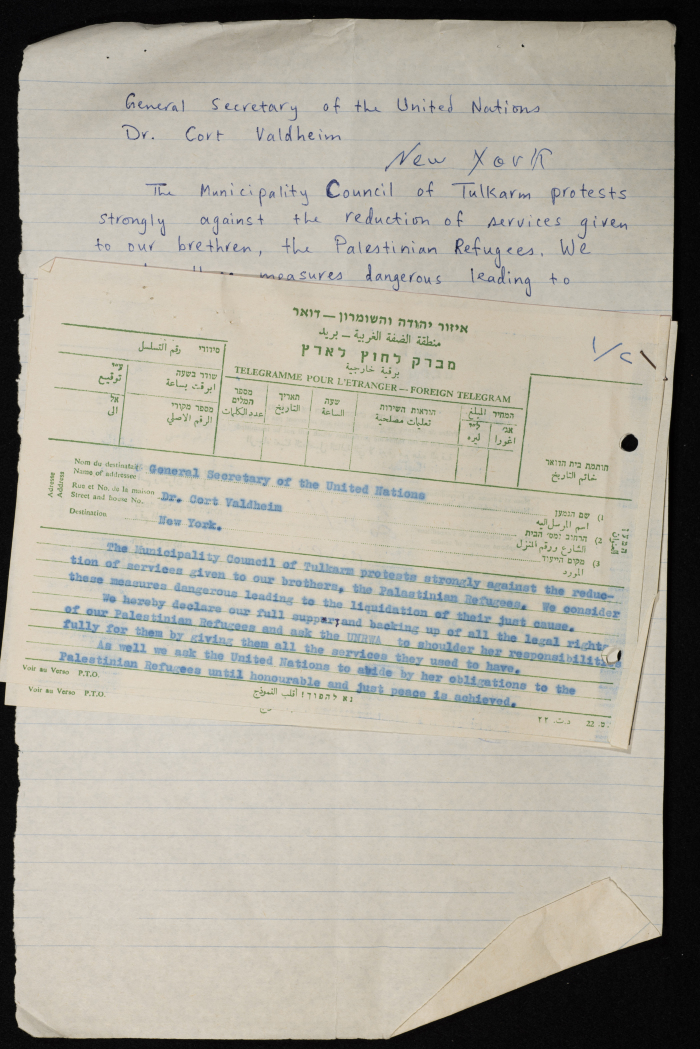 General Secretary of the United Nations
Dr. Cort Valdheim
New York
The Municipality Council of Tulkarm protests
strongly against the reduction of services given
to our brethren, the Palestinian Refugees. We
measures dangerous leading to
איזור יהודה והשומרון — דואר
منطقة الضفة الغربية — بريد
מברק לחוץ לארץ
برقية خارجية
TELEGRAMME POUR L'ETRANGER — FOREIGN TELEGRAM
סידורי رقم التسلسل
שודר בשעה
ابرقت بساعة
ע״י
توقيع
מספר מקורי
الرقم الاصلي
אל
الى
מספר המלים
عدد الكلمات
תאריך
التاريخ
שעה
الساعة
הוראות השירות
تعليمات مصلحية
המחיר المبلغ
ל״י
ليره
אג׳
اغورا
חותמת בית הדואר
خاتم التاريخ
Adresse
Address
Nom du destinataire
Name of addressee
General Secretary of the United Nations
1) שם הנמען
اسم المرسل اليه
Rue et No. de la maison
Street and house No.
Dr. Cort Valdheim
2) הרחוב ומס׳ הבית
الشارع ورقم المنزل
Destination
New York.
3) מקום הייעוד
المورد
המען
العنوان
The Municipality Council of Tulkarm protests strongly against the reduc-
tion of services given to our brothers, the Palestinian Refugees. We consider
these measures dangerous leading to the liquidation of their just cause.
We hereby declare our full support and backing up of all the legal rights
of our Palestinian Refugees and ask the UNRWA to shoulder her responsibilities
fully for them by giving them all the services they used to have.
As well we ask the United Nations to abide by her obligations to the
Palestinian Refugees until honourable and just peace is achieved.
Voir au Verso P.T.O.
Voir au Verso P.T.O.
נא להפוך! أقلب النموذج